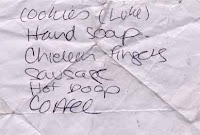 Cookies (Luke)
Hand Soap.
Chicken fingers
Sausage
Hot Soap
Coffee